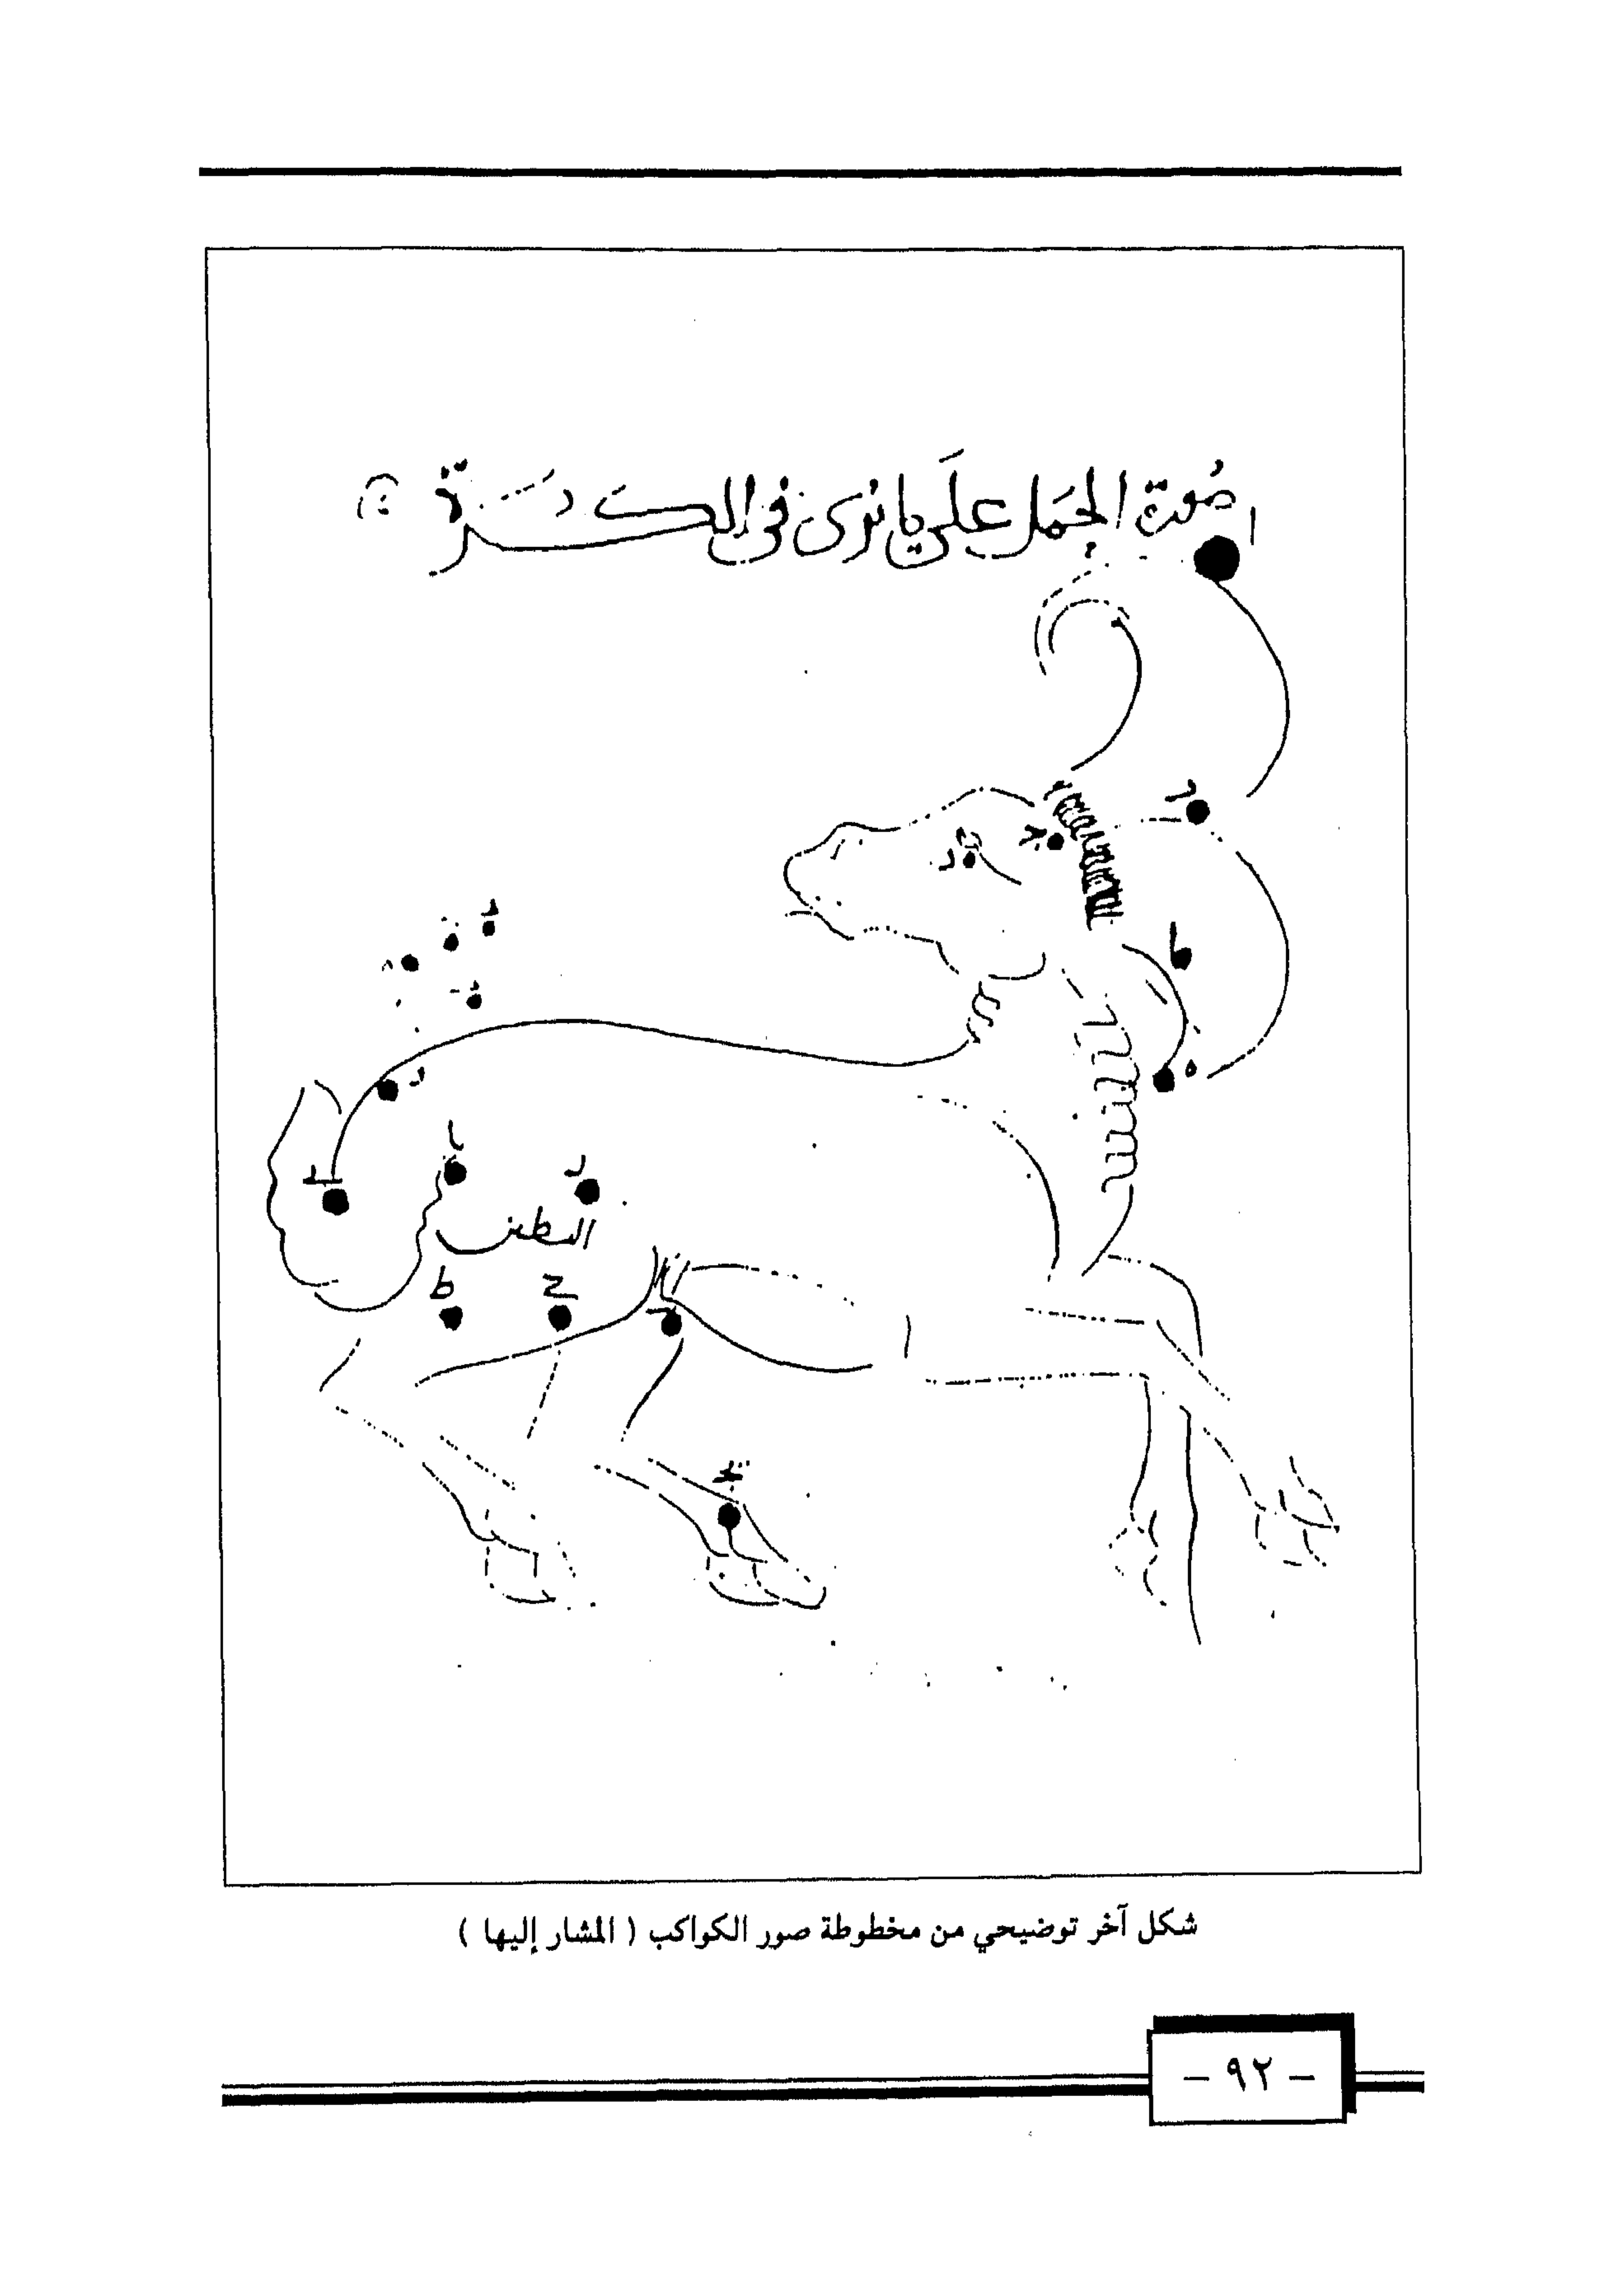 صُورَة الحَمَل عَلَى ما يُرى فى الكُرَة
ا
ط
ه
د
يا
البطين
ط
ح
شكل آخر توضيحي من مخطوطة صور الكواكب ( المشار إليها )
– ٩٢ –